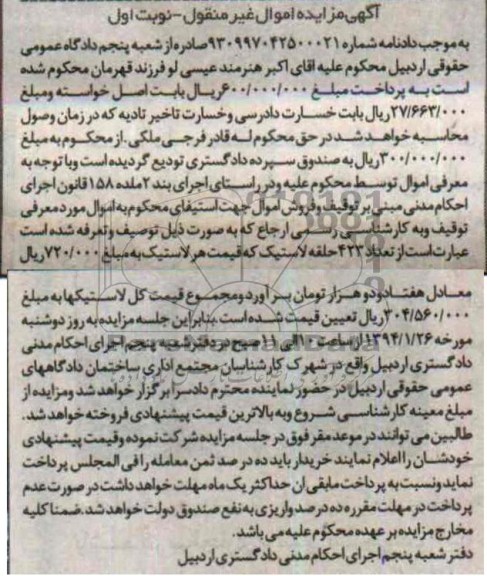 آگهی مزایده اموال غیر منقول -نوبت اول
به موجب دادنامه شماره ۹۳۰۹۹۷۰۴۲۵۰۰۰۲۱ صادره از شعبه پنجم دادگاه عمومی
حقوقی اردبیل محکوم علیه اقای اکبر هنرمند عیسی لو فرزند قهرمان محکوم شده
است به پرداخت مبلغ ۶۰۰/۰۰۰/۰۰۰ریال بابت اصل خواسته ومبلغ
۲۷/۶۶۳/۰۰۰ریال بابت خسارت دادرسی وخسارت تاخیر تادیه که در زمان وصول
محاسبه خواهد شد در حق محکوم له قادر فرجی ملکی .از محکوم به مبلغ
۳۰۰/۰۰۰/۰۰۰ریال به صندوق سپرده دادگستری تودیع گردیده است وبا توجه به
معرفی اموال توسط محکوم علیه ودر راستای اجرای بند ۲ماده ۱۵۸قانون اجرای
احکام مدنی مبنی بر توقیف وفروش اموال جهت استیفای محکوم به اموال مورد معرفی
توقیف وبه کارشناسی رسمی ارجاع که به صورت ذیل توصیف وتعرفه شده است
عبارت است از تعداد ۴۲۳حلقه لاستیک که قیمت هر لاستیک به مبلغ ۷۲۰/۰۰۰ ریال
معادل هفتادودو هزار تومان بر آورد ومجموع قیمت کل لاستیکها به مبلغ
۳۰۴/۵۶۰/۰۰۰ریال تعیین قیمت شده است.بنابراین جلسه مزایده به روز دوشنبه
مورخه ۱۳۹۴/۱/۲۶از ساعت ۱۰الی ۱۱صبح در دفتر شعبه پنجم اجرای احکام مدنی
دادگستری اردبیل واقع در شهرک کارشناسان مجتمع اداری ساختمان دادگاههای
عمومی حقوقی اردبیل در حضور نماینده محترم دادسرا برگزار خواهد شد ومزایده از
مبلغ معینه کارشناسی شروع وبه بالاترین قیمت پیشنهادی فروخته خواهد شد.
طالبین می توانند در موعد مقرر فوق در جلسه مزایده شرکت نموده وقیمت پیشنهادی
خودشان را اعلام نمایند خریدار باید ده در صد ثمن معامله را فی المجلس پرداخت
نماید ونسبت به پرداخت مابقی ان حداکثر یک ماه مهلت خواهد داشت در صورت عدم
پرداخت در مهلت مقرره ده درصد واریزی به نفع صندوق دولت خواهد شد.ضمنا کلیه
مخارج مزایده بر عهده محکوم علیه می باشد.
دفتر شعبه پنجم اجرای احکام مدنی دادگستری اردبیل